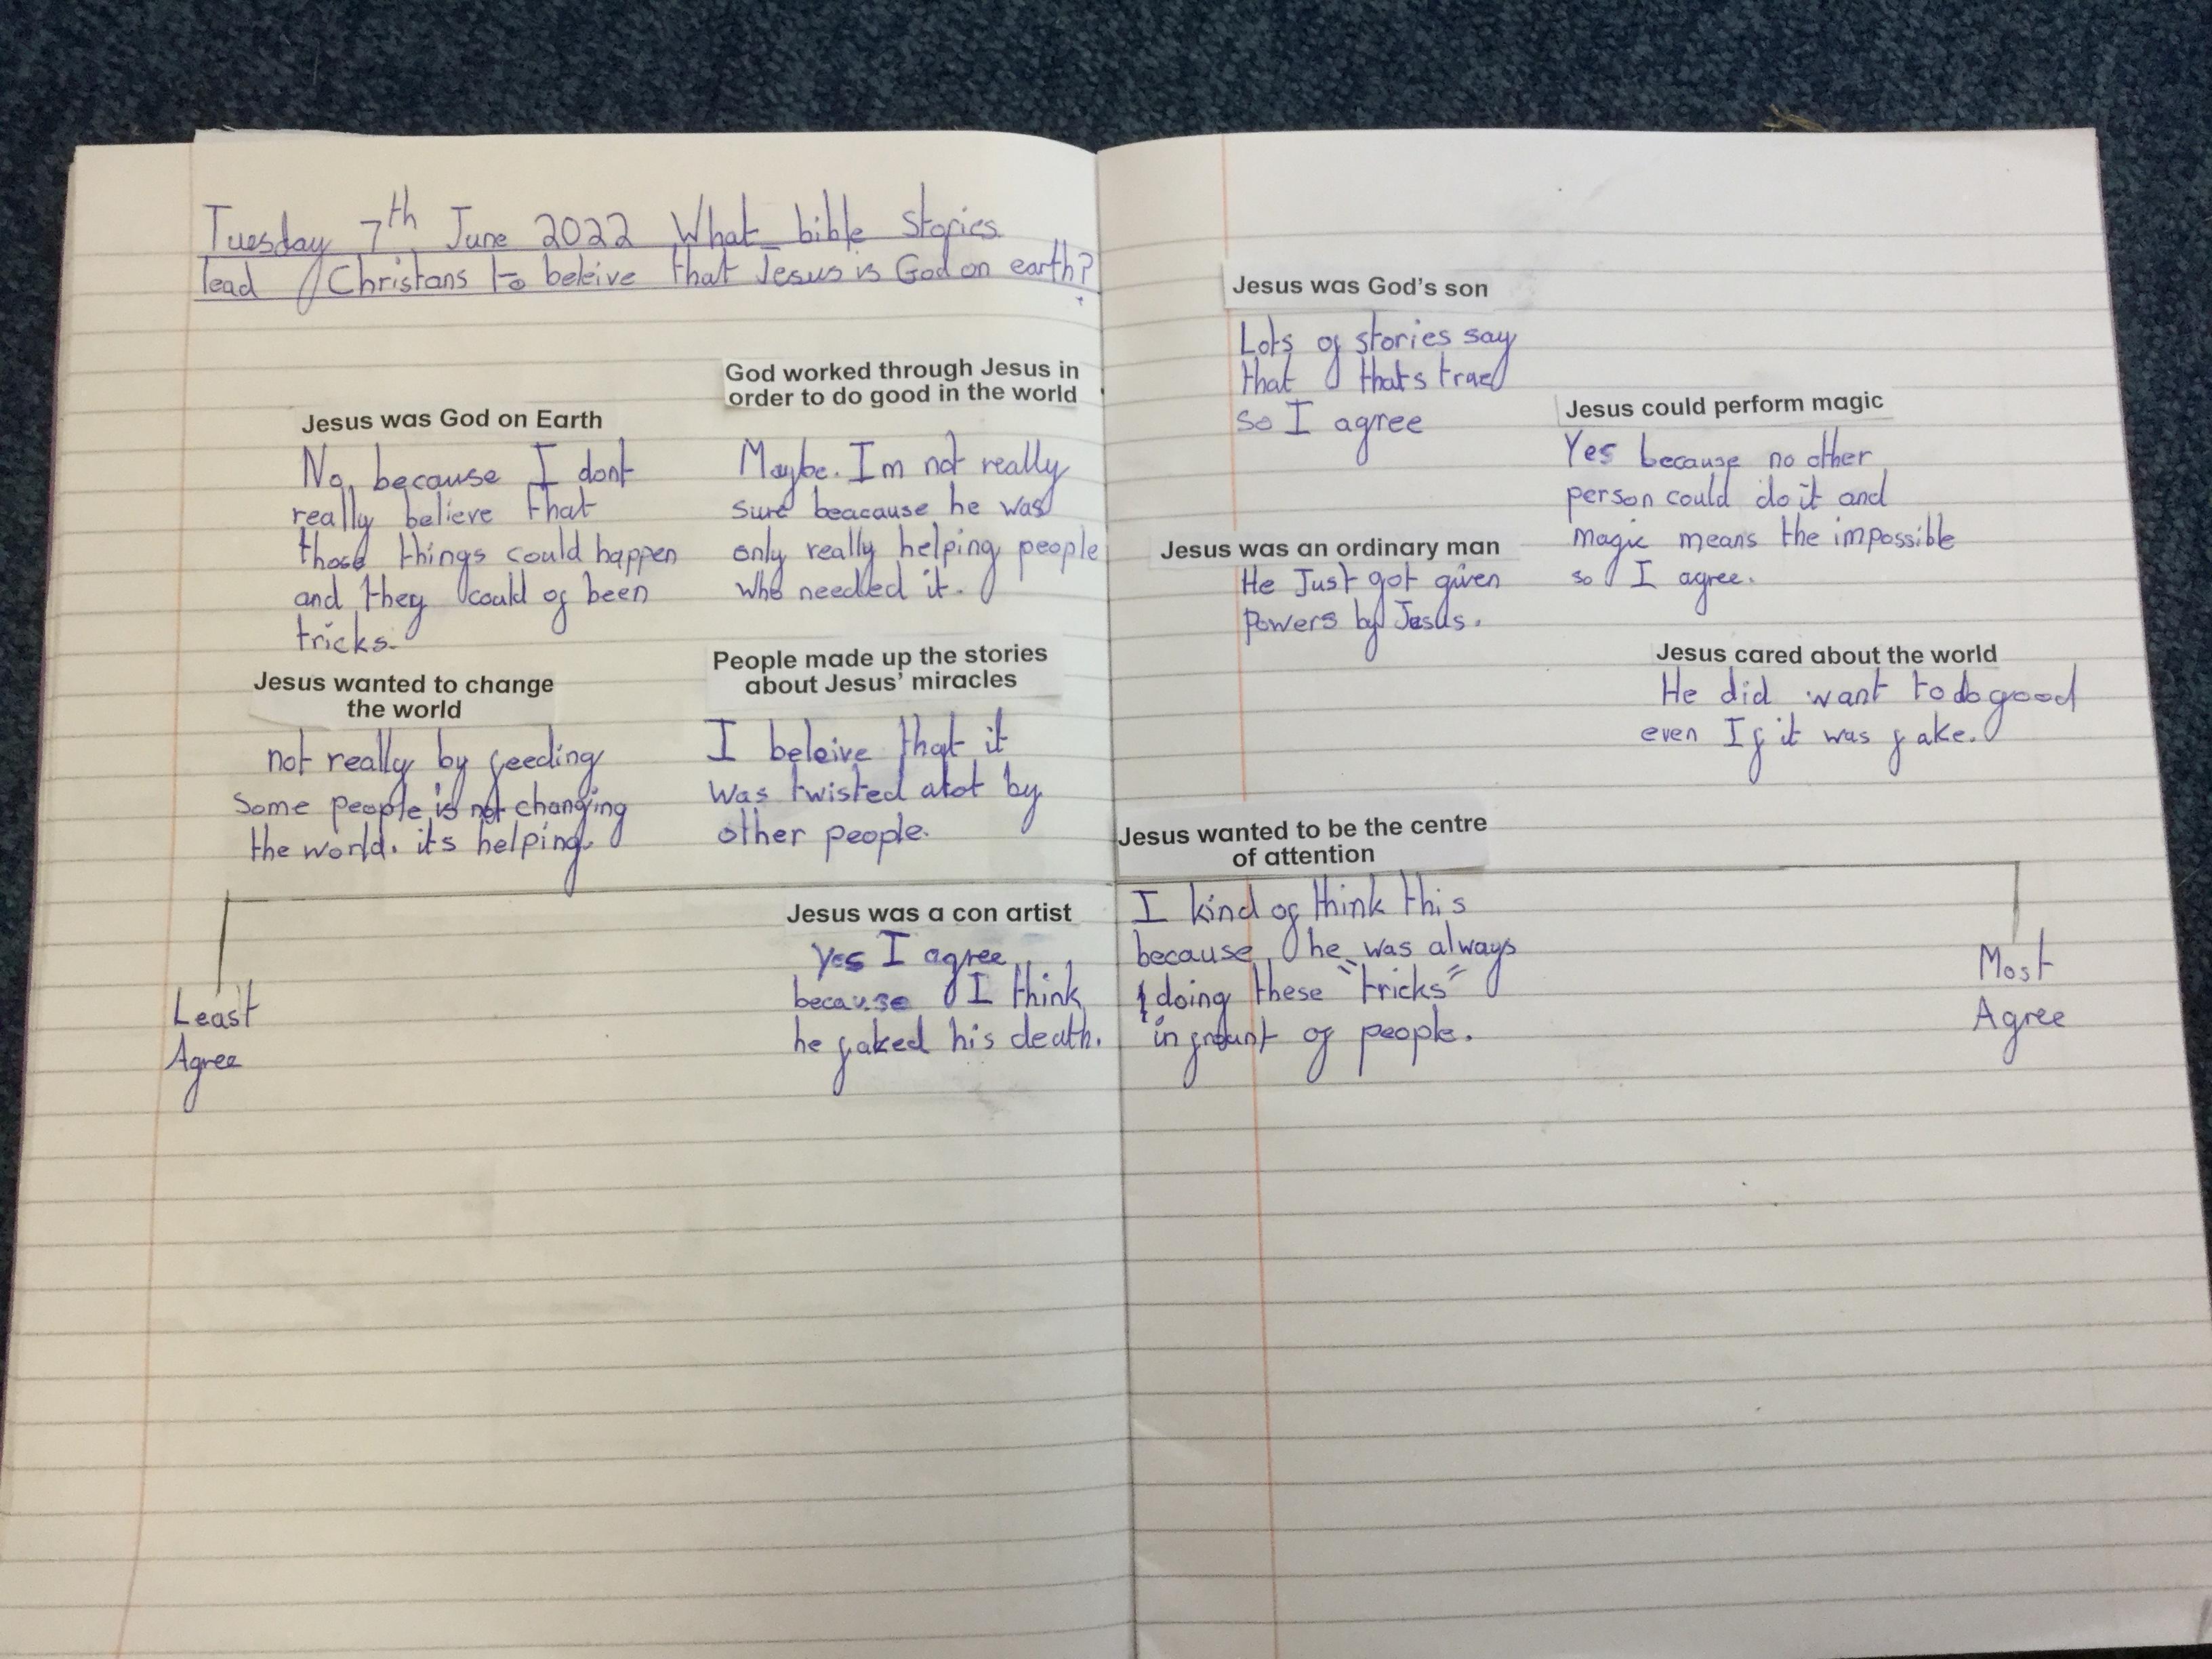 Tuesday 7th June 2022 What bible stories
lead Christans to beleive that Jesus is God on earth?
Jesus was God on Earth
No, because I dont
really believe that
those things could happen
and they could of been
tricks.
God worked through Jesus in
order to do good in the world
Maybe. Im not really
sure beacause he was
only really helping people
who needed it.
Jesus wanted to change
the world
not really by feeding
some people is not changing
the world. its helping.
People made up the stories
about Jesus' miracles
I beleive that it
was twisted alot by
other people.
Jesus was a con artist
yes I agree
because I think
he faked his death.
Least
Agree
Jesus was God's son
Lots of stories say
that thats true
so I agree
Jesus could perform magic
Yes because no other
person could do it and
magic means the impossible
so I agree.
Jesus was an ordinary man
He Just got given
powers by Jesus.
Jesus cared about the world
He did want to do good
even If it was fake.
Jesus wanted to be the centre
of attention
I kind of think this
because he was always
doing these "tricks"
in of people.
Most
Agree